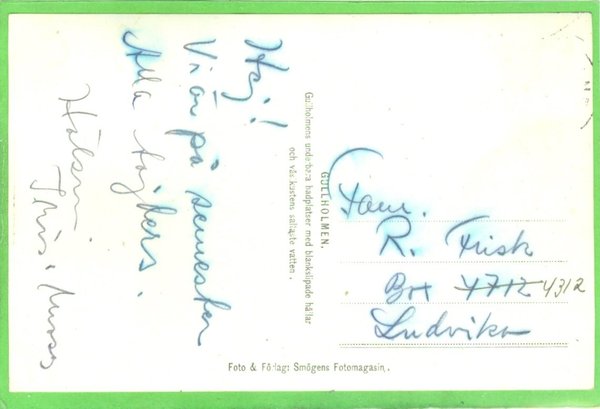 Hej!
Vi är på semester
Alla tajders.
Hälsn.
GULLHOLMEN.
Gullholmens underbara badplatser med blankslipade hällar
och västkustens saltaste vatten.
Fam.
R. Frisk
Box 4712 4312
Ludvika
Foto & Förlag: Smögens Fotomagasin.